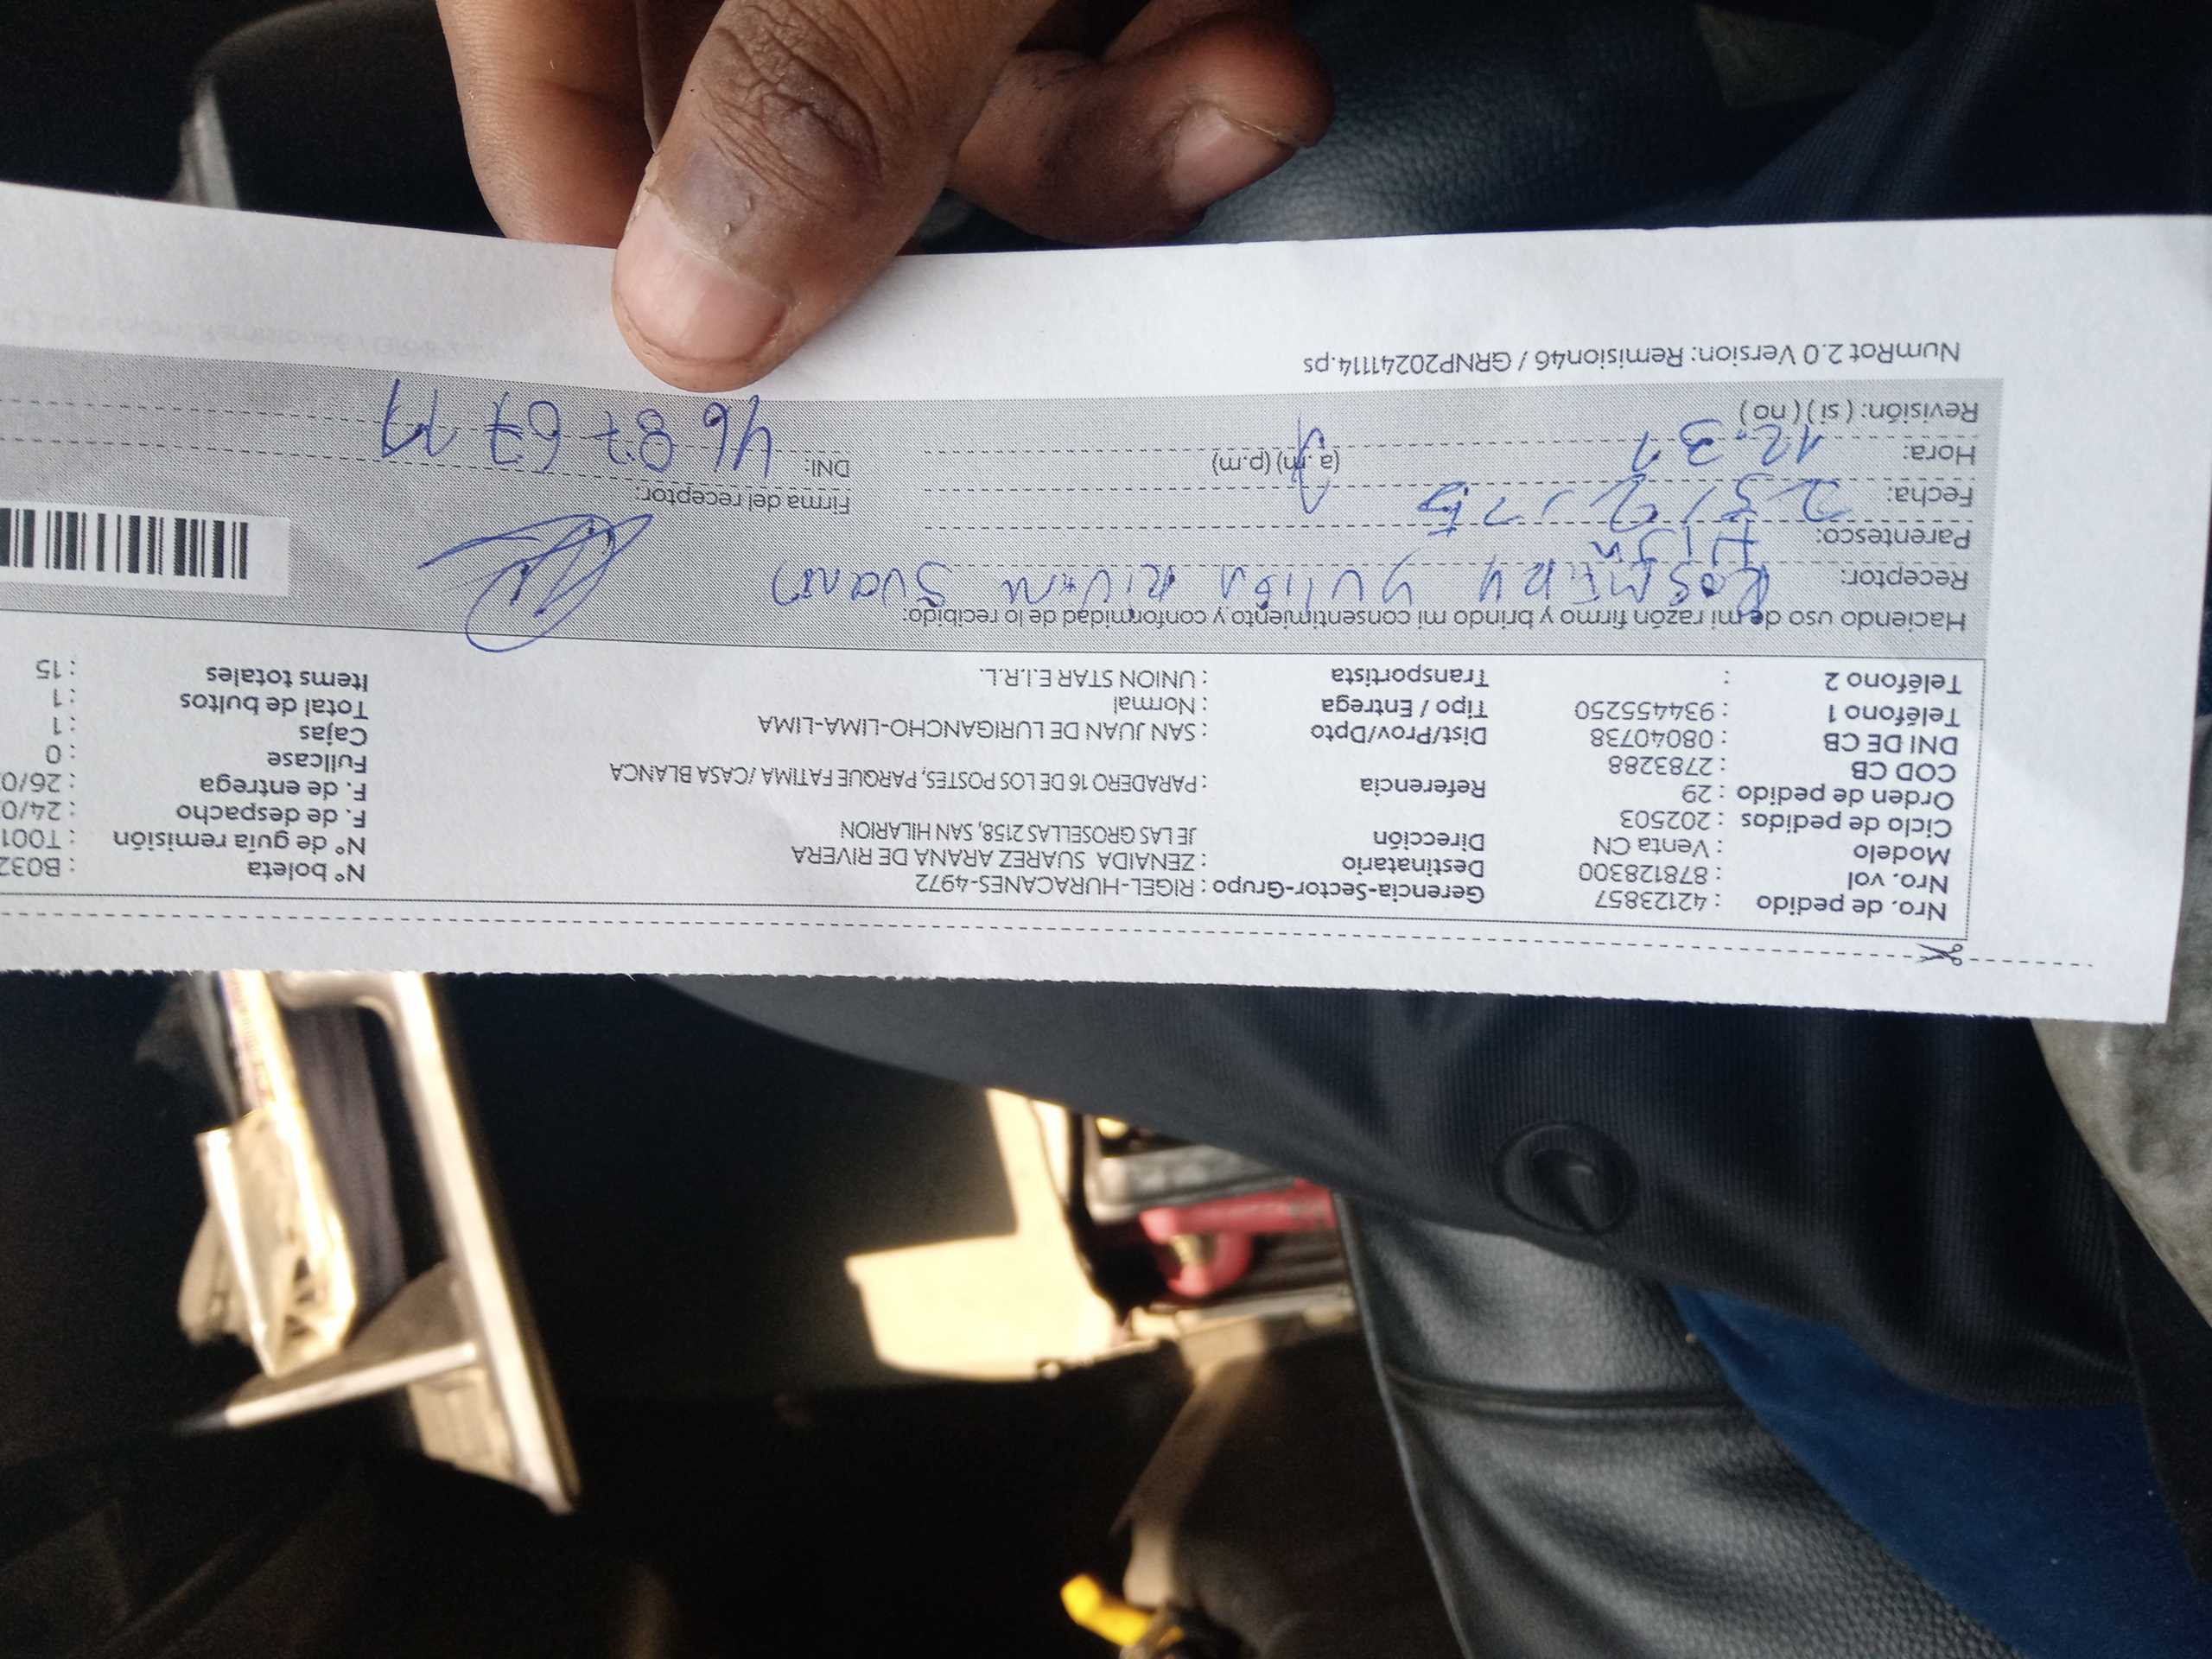 Nro. de pedido : 42123857 Gerencia-Sector-Grupo : RIGEL-HURACANES-4972 N° boleta : B032
Nro. vol : 878128300 Destinatario : ZENAIDA SUAREZ ARANA DE RIVERA N° de guía remisión : T001
Modelo : Venta CN Dirección JE LAS GROSELLAS 2158, SAN HILARION F. de despacho : 24/0
Ciclo de pedidos : 202503 F. de entrega : 26/0
Orden de pedido : 29 Referencia : PARADERO 16 DE LOS POSTES, PARQUE FATIMA / CASA BLANCA Fullcase : 0
COD CB : 2783288 Cajas : 1
DNI DE CB : 08040738 Dist/Prov/Dpto : SAN JUAN DE LURIGANCHO-LIMA-LIMA Total de bultos : 1
Teléfono 1 : 934455250 Tipo / Entrega : Normal Items totales : 15
Teléfono 2 : Transportista : UNION STAR E.I.R.L.
Haciendo uso de mi razón firmo y brindo mi consentimiento y conformidad de lo recibido:
Receptor: ROSMERY
Parentesco: Hija
Fecha: Firma del receptor:
Hora: 12.31 (a.m) (p.m) DNI: 46876777
Revisión: ( si ) ( no )
NumRot 2.0 Version: Remision46 / GRNP20241114.ps